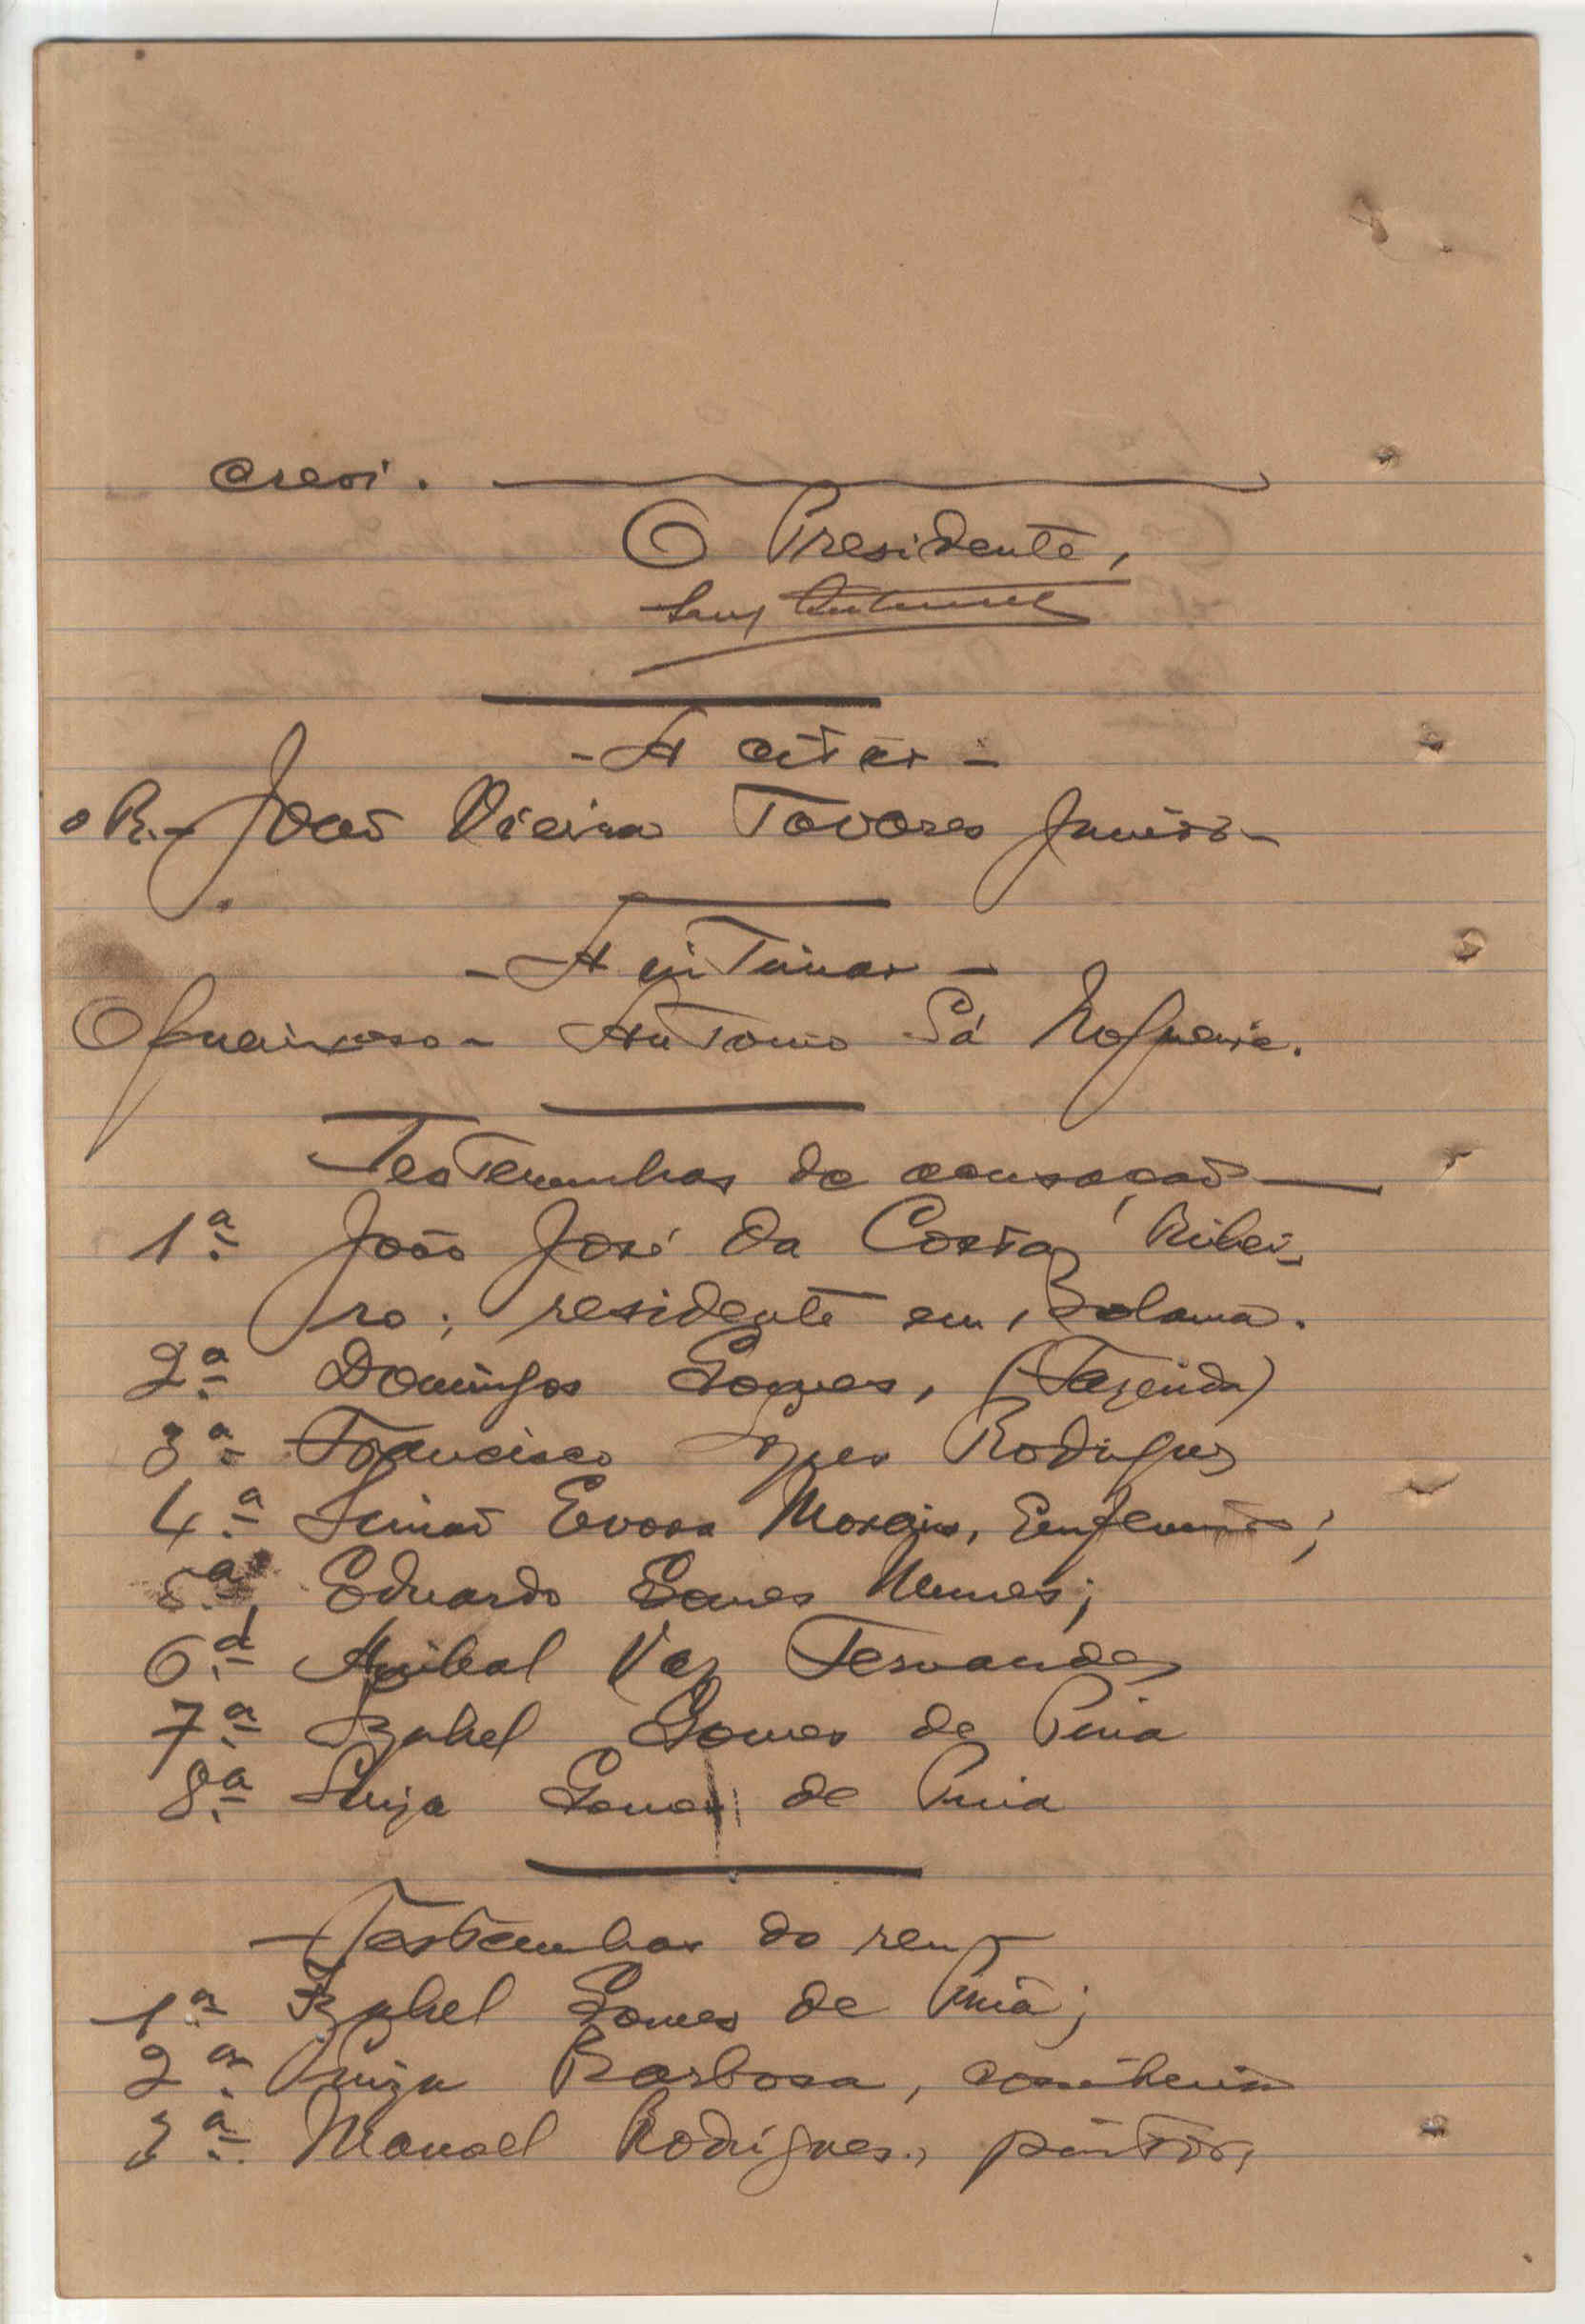 crevi.
O Presidente,
- A citar -
o R. - João Vieira Tavares Junior -
- A intimar -
O queixoso - Antonio Sá Nogueira.
Testemunhas de acusação
1ª João José da Costa Ribei-
ro; residente em Bolama.
2ª Domingos Gomes, (Fazenda)
3ª Francisco Lopes Rodrigues
4ª Simão Evora Morais, Enfermeiro;
5ª Eduardo Gomes Nunes;
6ª Anibal Vaz Fernandes
7ª Izabel Gomes de Pina
8ª Luiza Gomes de Pina
Testemunhas do reu
1ª Izabel Gomes de Pina;
2ª Luiza Barbosa,
3ª Manoel Rodrigues, pintor,